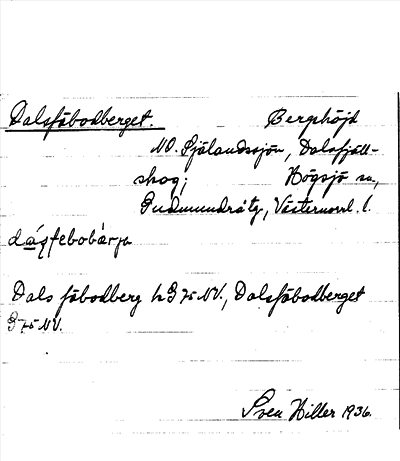 Dalsfäbodberget. Berghöjd
NO. Själandssjön, Dalsfjäll-
skog; Högsjö sn,
Gudmundrå tg, Västernorrl. l.
Dalsfäbodberg h G 75 NV., Dalsfäbodberget
G 75 NV.
Sven Hiller 1936.